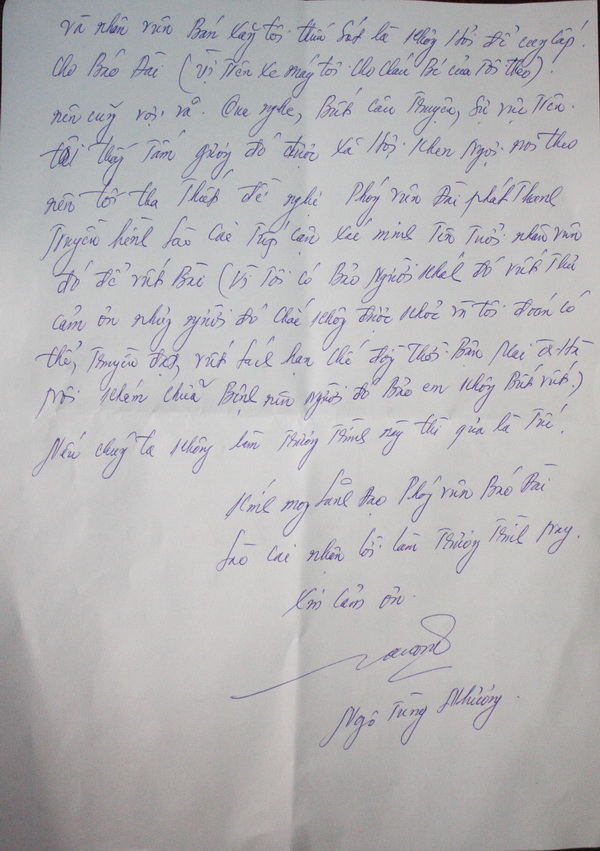 và nhân viên Bán xăng tôi thiếu sót là không hỏi để cung cấp.
Cho Báo Đài (vì Trên xe máy tôi cho cháu Bé của Tôi theo).
nên cũng vội vã. Qua nghe, Biết câu Truyện, sự việc Trên.
tôi thấy Tấm gương đó được xã Hội khen ngợi noi theo
nên tôi tha Thiết đề nghị Phóng viên Đài phát Thanh
Truyền hình Lào Cai Tiếp cận xác minh Tên Tuổi nhân viên
đó để viết Bài (Vì Tôi có Bảo người khác đó viết Thư
cảm ơn nhưng người đó chắc không được khỏe vì tôi đoán có
thể, Truyền đạt, viết lách hạn chế đồng thời Bận phải đi Hà
Nội khám chữa Bệnh nên người đó Bảo em không Biết viết.)
Nếu chúng ta không làm Phóng Trình này thì qủa là Tiế.
Kính mong Lãnh Đạo Phóng viên Báo Đài
Lào Cai nhận lời làm Phóng Trình này.
Xin Cảm ơn.
Ngô Tùng Nhưởng.